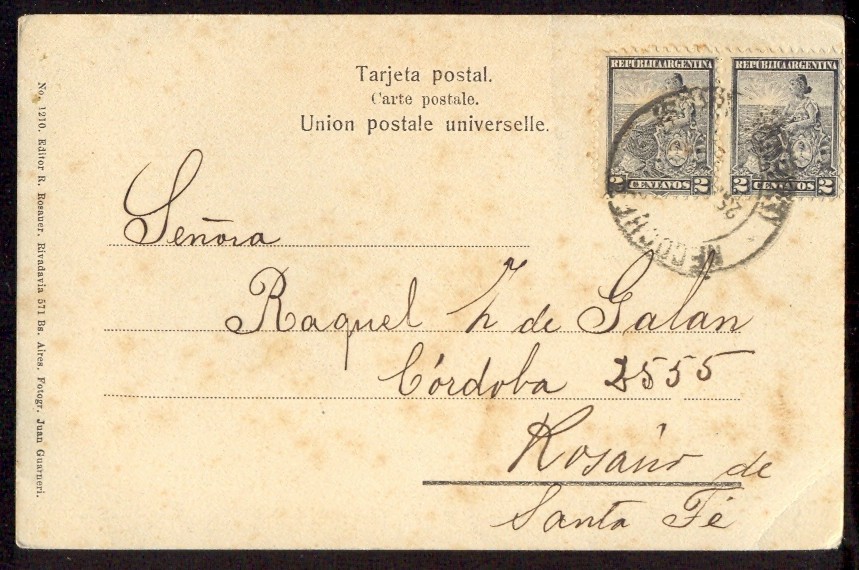 Tarjeta postal.
Carte postale.
Union postale universelle.
REPÚBLICA ARGENTINA
2 CENTAVOS 2
REPÚBLICA ARGENTINA
2 CENTAVOS 2
NECOCHEA
Señora
Raquel Z de Galan
Córdoba 2555
Rosário de
Santa Fé
No. 1210. Editor R. Rosauer. Rivadavia 571 Bs. Aires. Fotogr. Juan Guarneri.